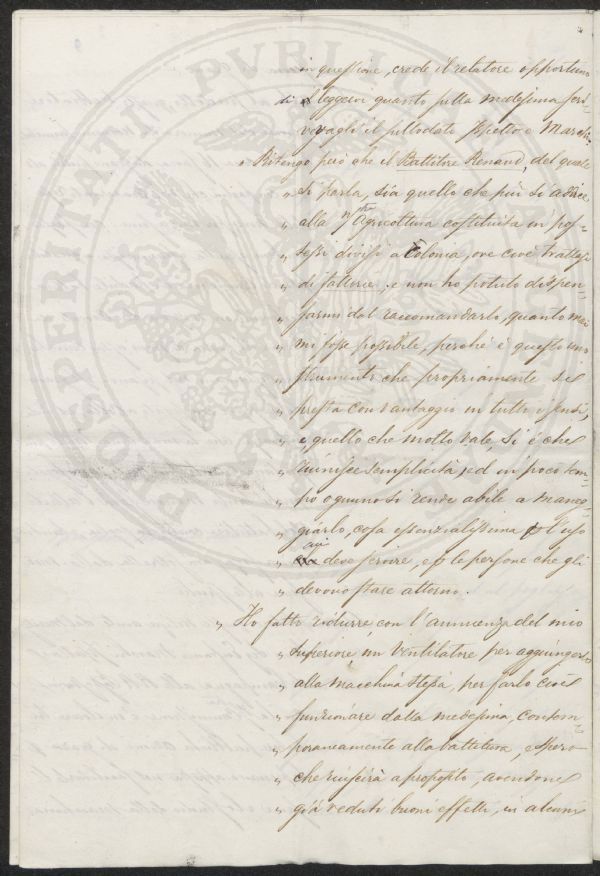 in questione, crede il relatore opportuno
di leggervi quanto sulla medesima scri-
vevagli il sullodato Ispettore
„ Ritengo però che il Battitore Renaud, del quale
„ si parla, sia quello che più si addice,
„ alla nostra Agricoltura costituita in pos-
„ sessi divisi a Colonia, ove cioè trattasi
„ di fattorie; e non ho potuto dispen-
„ sarmi dal raccomandarlo, quanto mai
„ mi fosse possibile, perché è questo uno
„ strumento che propriamente si
„ presta con vantaggio in tutti i sensi,
„ e, quello che molto vale, si è che
„ riunisce semplicità, ed in poco tem-
„ po ognuno si rende abile a maneg-
„ giarlo, cosa essenzialissima p l'uso
„ cui deve servire, e p le persone che gli
„ devono stare attorno.
„ Ho fatto ridurre, con l'annuenza del mio
„ superiore un Ventilatore per aggiungerlo
„ alla macchina stessa, per farlo cioè
„ funzionare dalla medesima, contem-
„ poraneamente alla battitura, e spero
„ che riuscirà a proposito, avendone
„ già veduti buoni effetti, in alcuni
PROSPERITATI PUBLICAE